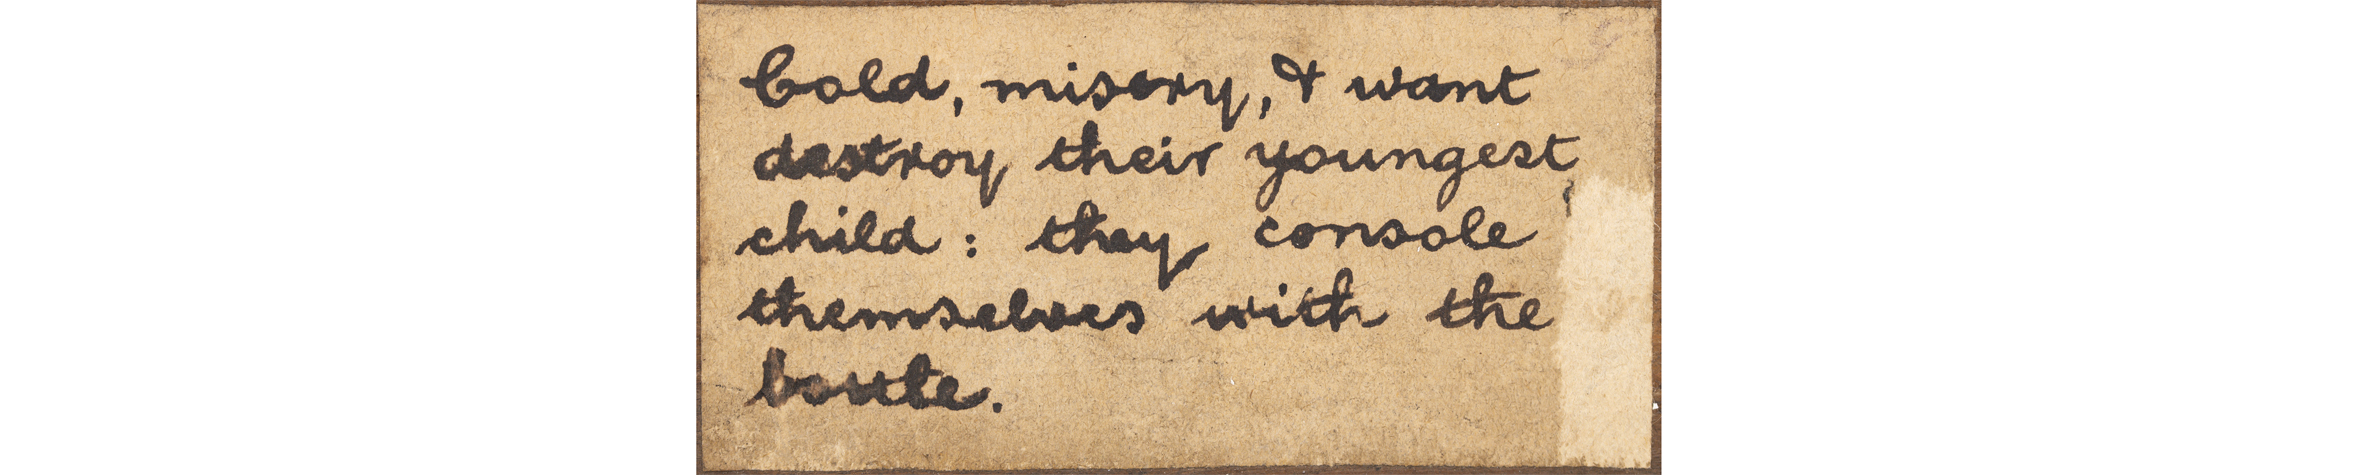 Cold, misery, & want
destroy their youngest
child: they console
themselves with the
bottle.